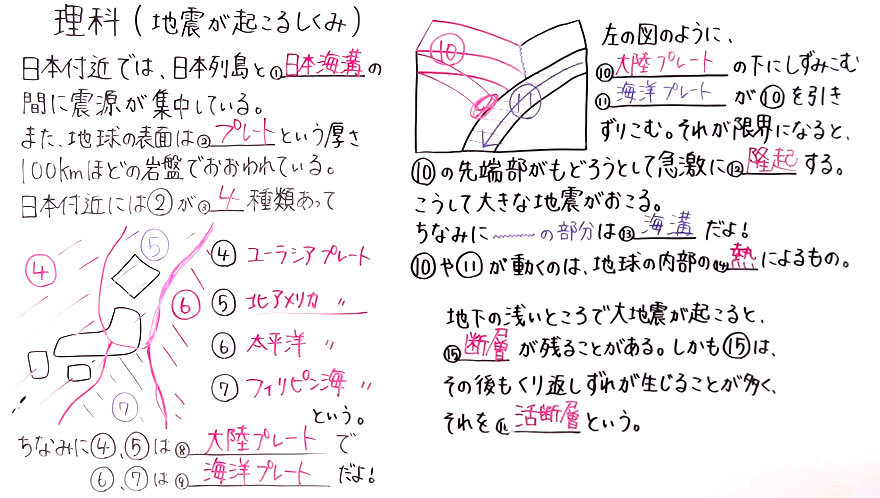 理科(地震が起こるしくみ)
日本付近では、日本列島と①日本海溝の
間に震源が集中している。
また、地球の表面は②プレートという厚さ
100kmほどの岩盤でおおわれている。
日本付近には②が③4種類あって
④
⑤
⑥
⑦
④ユーラシアプレート
⑤北アメリカ〃
⑥太平洋〃
⑦フィリピン海〃
という。
ちなみに④、⑤は⑧大陸プレートで
⑥、⑦は⑨海洋プレートだよ!
⑩
⑪
左の図のように、
⑩大陸プレートの下にしずみこむ
⑪海洋プレートが⑩を引き
ずりこむ。それが限界になると、
⑩の先端部がもどろうとして急激に⑫隆起する。
こうして大きな地震がおこる。
ちなみに〰〰の部分は⑬海溝だよ!
⑩や⑪が動くのは、地球の内部の⑭熱によるもの。
地下の浅いところで大地震が起こると、
⑮断層が残ることがある。しかも⑮は、
その後もくり返しずれが生じることが多く、
それを⑯活断層という。